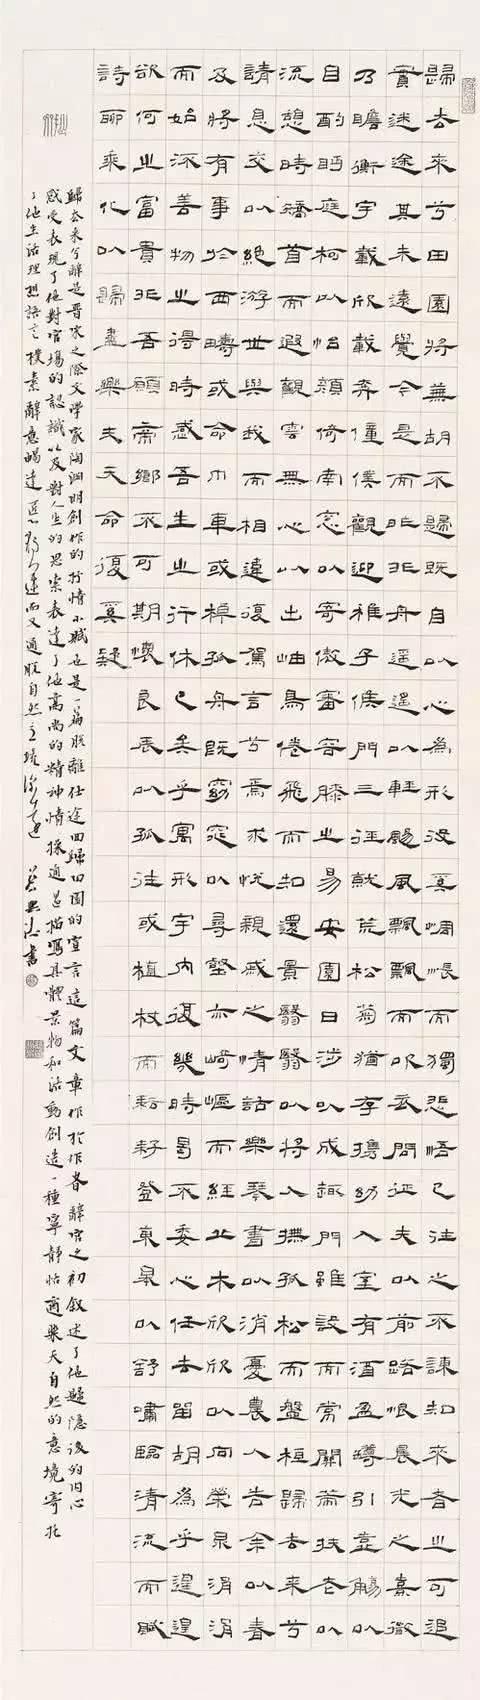 歸去來兮田園將蕪胡不歸既自以心為形役奚惆悵而獨悲悟已往之不諫知來者之可追
實迷途其未遠覺今是而昨非舟遙遙以輕颺風飄飄而吹衣問征夫以前路恨晨光之熹微
乃瞻衡宇載欣載奔僮僕歡迎稚子候門三徑就荒松菊猶存攜幼入室有酒盈樽引壺觴以
自酌眄庭柯以怡顏倚南窗以寄傲審容膝之易安園日涉以成趣門雖設而常關策扶老以
流憩時矯首而遐觀雲無心以出岫鳥倦飛而知還景翳翳以將入撫孤松而盤桓歸去來兮
請息交以絕游世與我而相違復駕言兮焉求悅親戚之情話樂琴書以消憂農人告余以春
及將有事於西疇或命巾車或棹孤舟既窈窕以尋壑亦崎嶇而經丘木欣欣以向榮泉涓涓
而始流善物之得時感吾生之行休已矣乎寓形宇內復幾時曷不委心任去留胡為乎遑遑
欲何之富貴非吾願帝鄉不可期懷良辰以孤往或植杖而耘耔登東皋以舒嘯臨清流而賦
詩聊乘化以歸盡樂夫天命復奚疑
歸去來兮辭是晉宋之際文學家陶淵明創作的抒情小賦也是一篇脫離仕途回歸田園的宣言這篇文章作於作者辭官之初敘述了他歸隱後的內心
感受表現了他對官場的認識以及對人生的思索表達了他高尚的精神情操通過描寫具體景物和活動創造一種寧靜恬適樂天自然的意境寄托
了他生活理想語言樸素辭意暢達匠心獨運而又通脫自然 書